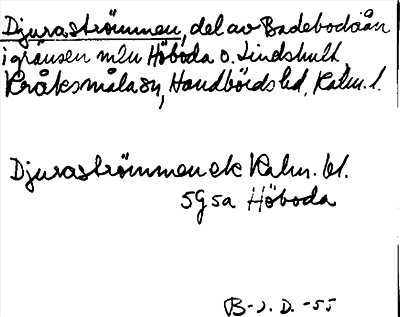 Djuraströmmen, del av Badebodaån
i gränsen mln Höboda o. Lindshult,
Kråksmåla sn, Handbörds hd, Kalm. l.
Djuraströmmen ek Kalm. bl.
5G5a Höboda
B-J. D. -55